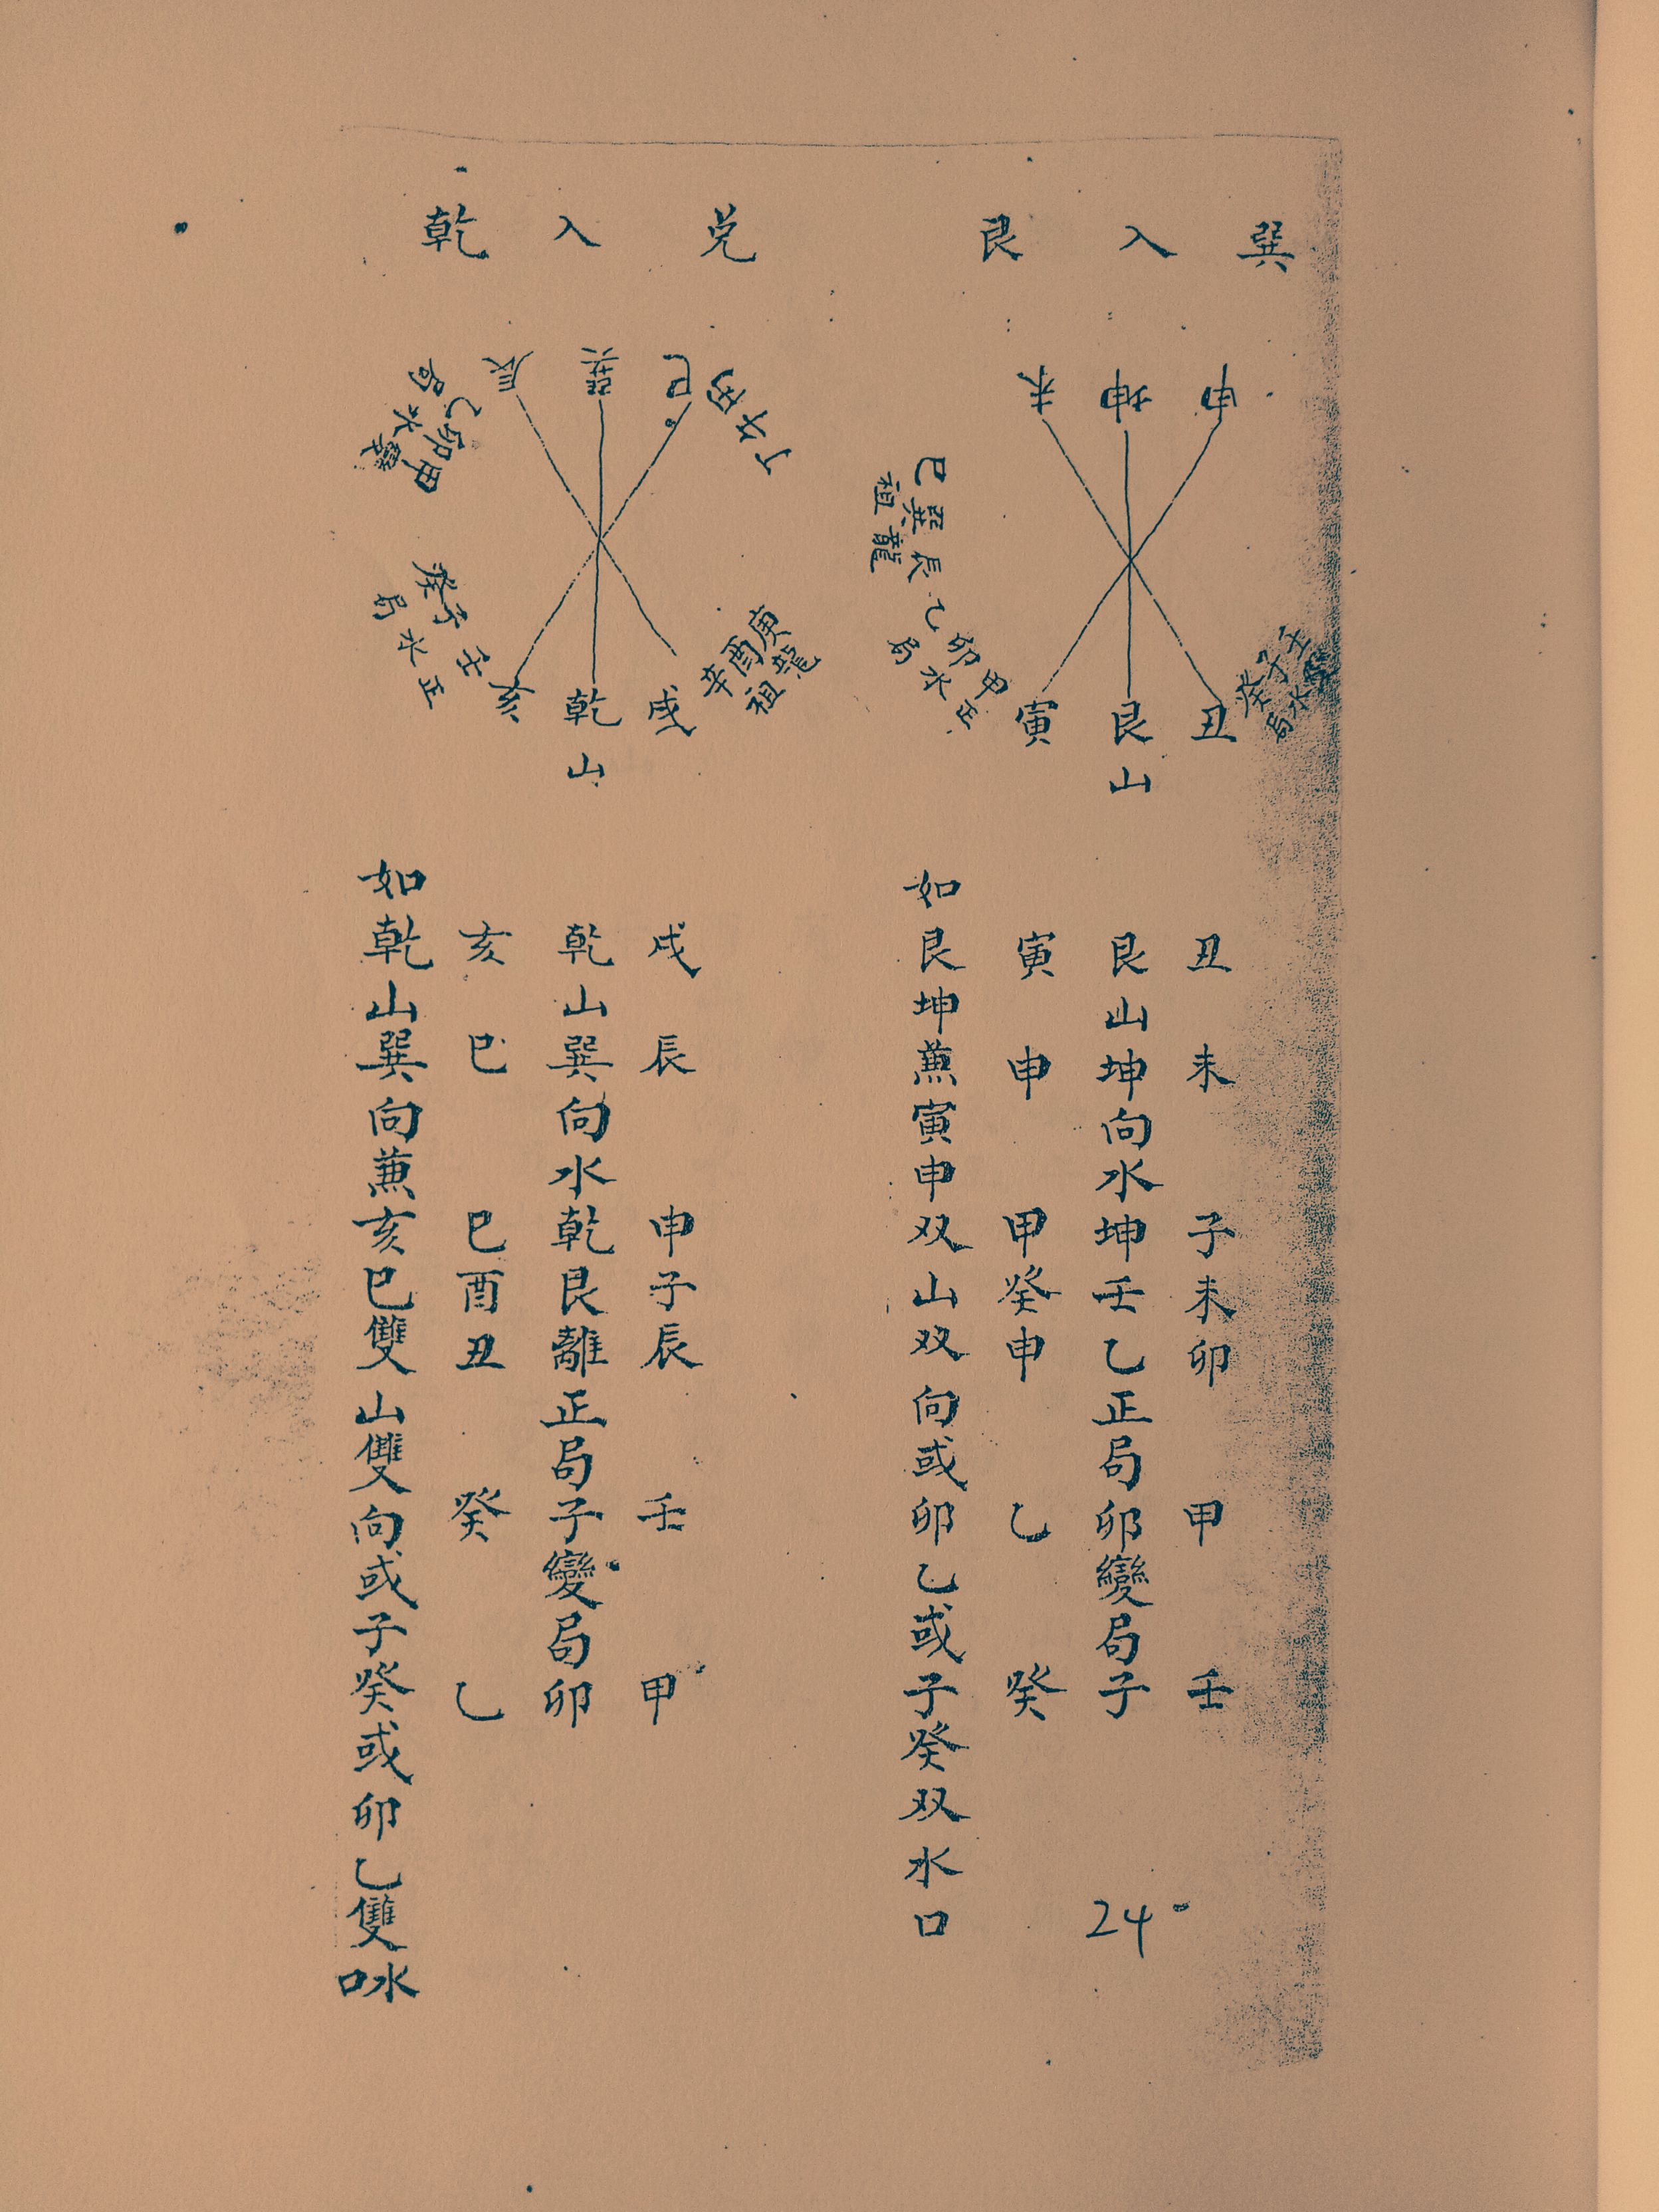 巽入艮
申
坤
未
巳巽辰
祖龍
乙卯甲
局水正
壬子癸
局水
丑
艮山
寅
丑未 子未卯 甲 壬
艮山坤向水坤壬乙正局卯變局子
寅申 甲癸申 乙 癸
如艮坤蒹寅申双山双向或卯乙或子癸双水口
24
兊入乾
丁午丙
巳
巽
辰
乙卯甲
局水變
癸子壬
局水正
庚酉辛
龍祖
戌
乾山
亥
戌辰 申子辰 壬 甲
乾山巽向水乾艮離正局子變局卯
亥巳 巳酉丑 癸 乙
如乾山巽向蒹亥巳雙山雙向或子癸或卯乙雙水口